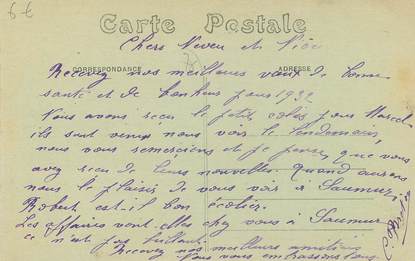 6 €
Carte Postale
Chers Neveu et Nièce
CORRESPONDANCE
ADRESSE
Recevez nos meilleurs vœux de bonne
santé et de bonheur pour 1932
Nous avons reçu le petit colis pour Marcel
ils sont venus nous voir le lendemain,
nous vous remercions et je pense que vous
avez reçu de leurs nouvelles. Quand aurons
nous le plaisir de vous voir à Saumur.
Robert est-il bon écolier.
Les affaires vont-elles chez vous à Saumur
ce n'est pas brillant.
Recevez nos meilleures amitiés
Nous vous embrassons tous